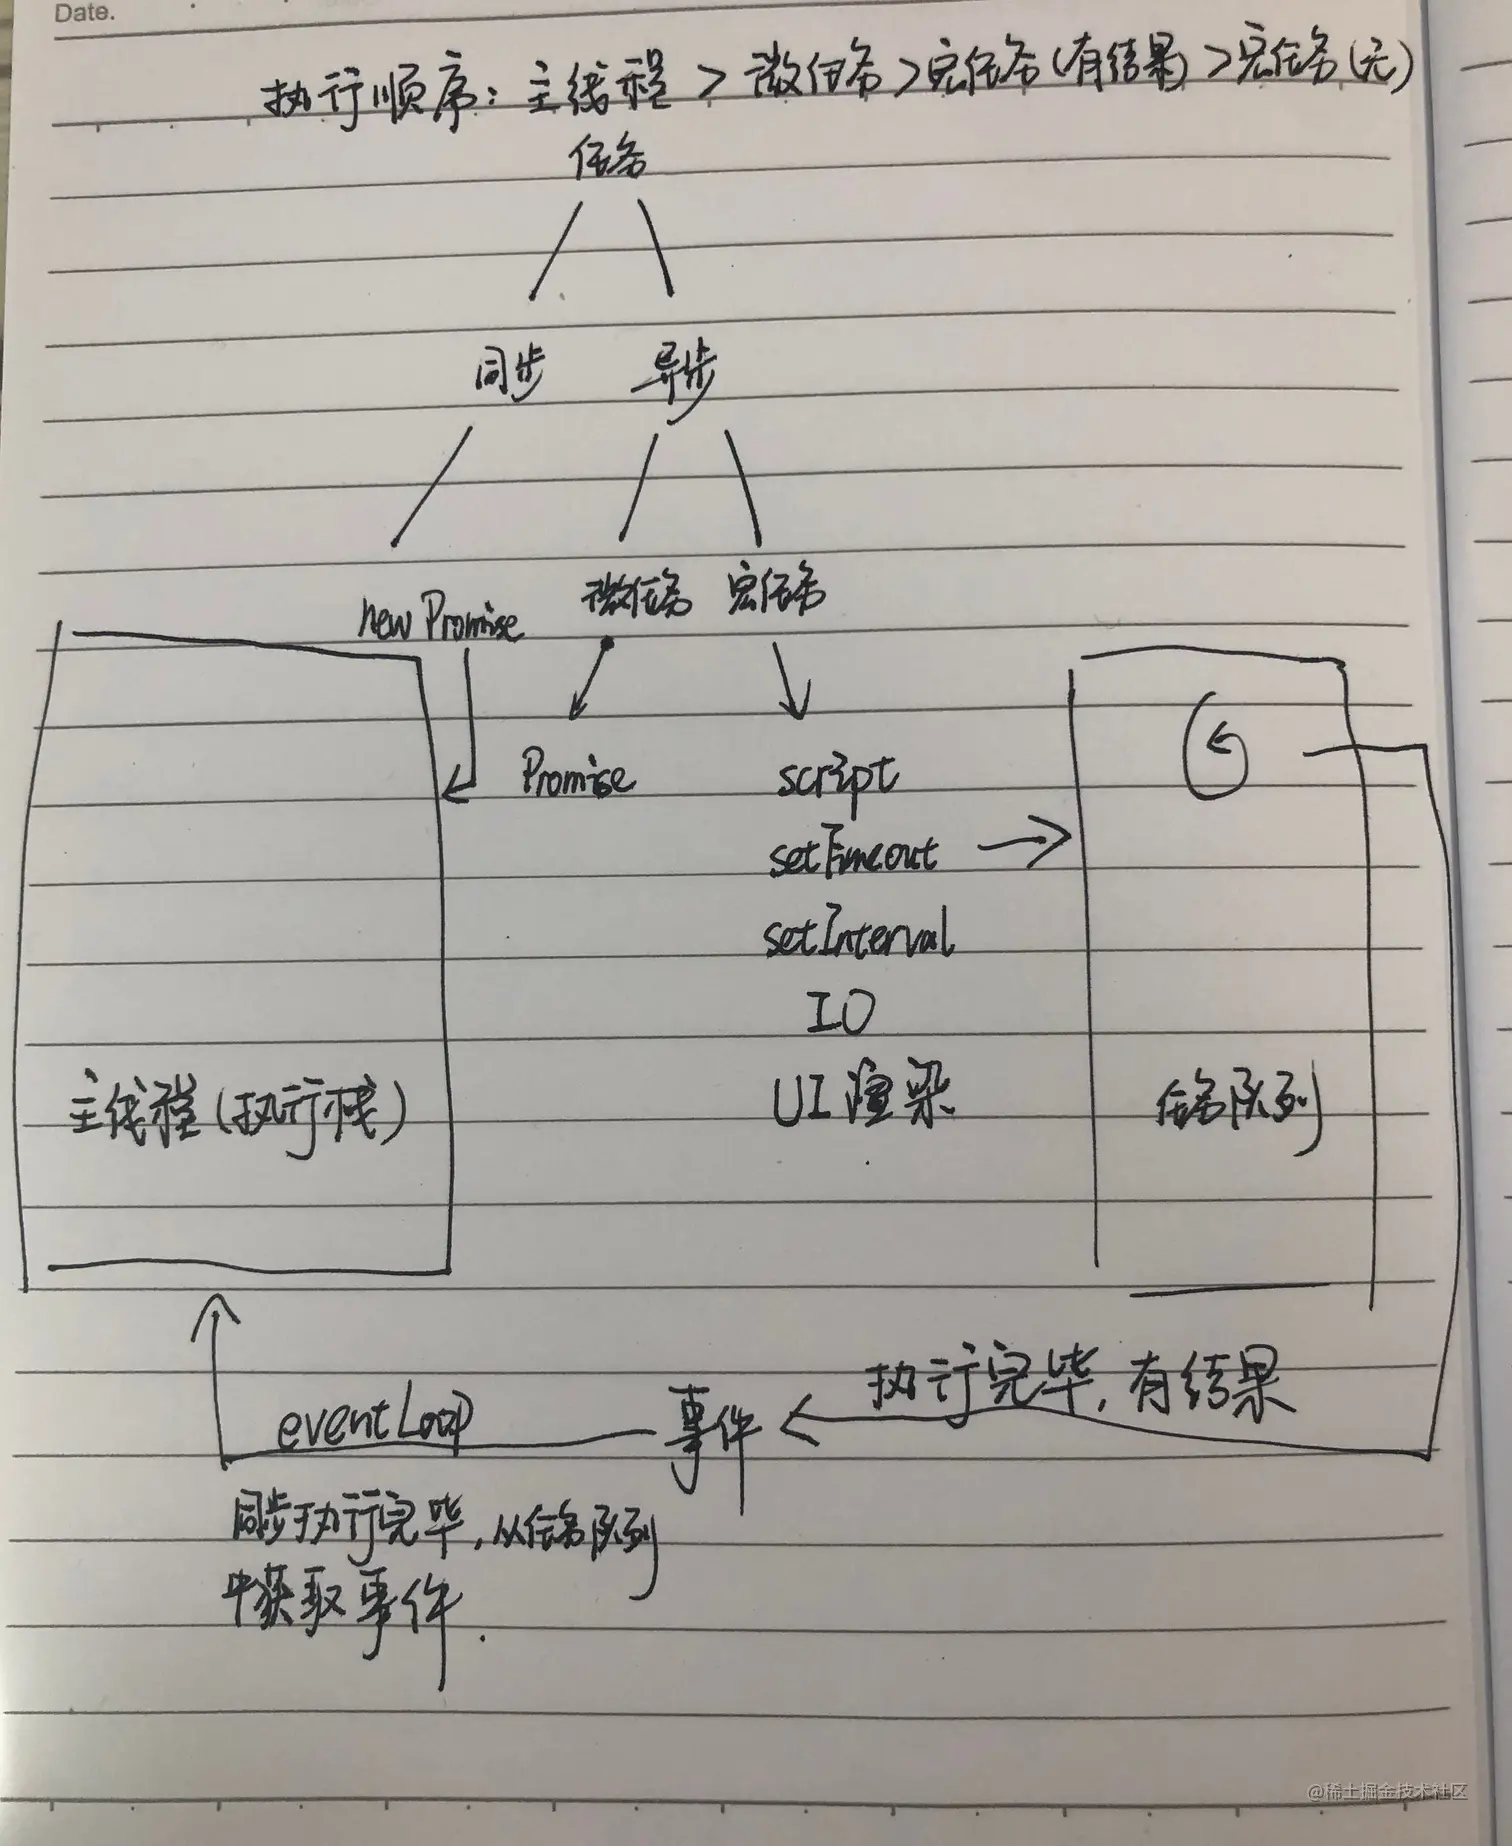 Date.
执行顺序：主线程 > 微任务 > 宏任务(有结果) > 宏任务(无)
任务
同步 异步
new Promise 微任务 宏任务
Promise script
setTimeout
setInterval
IO
主线程(执行栈) UI渲染 任务队列
执行完毕，有结果
eventLoop 事件
同步执行完毕，从任务队列
中获取事件.
@稀土掘金技术社区